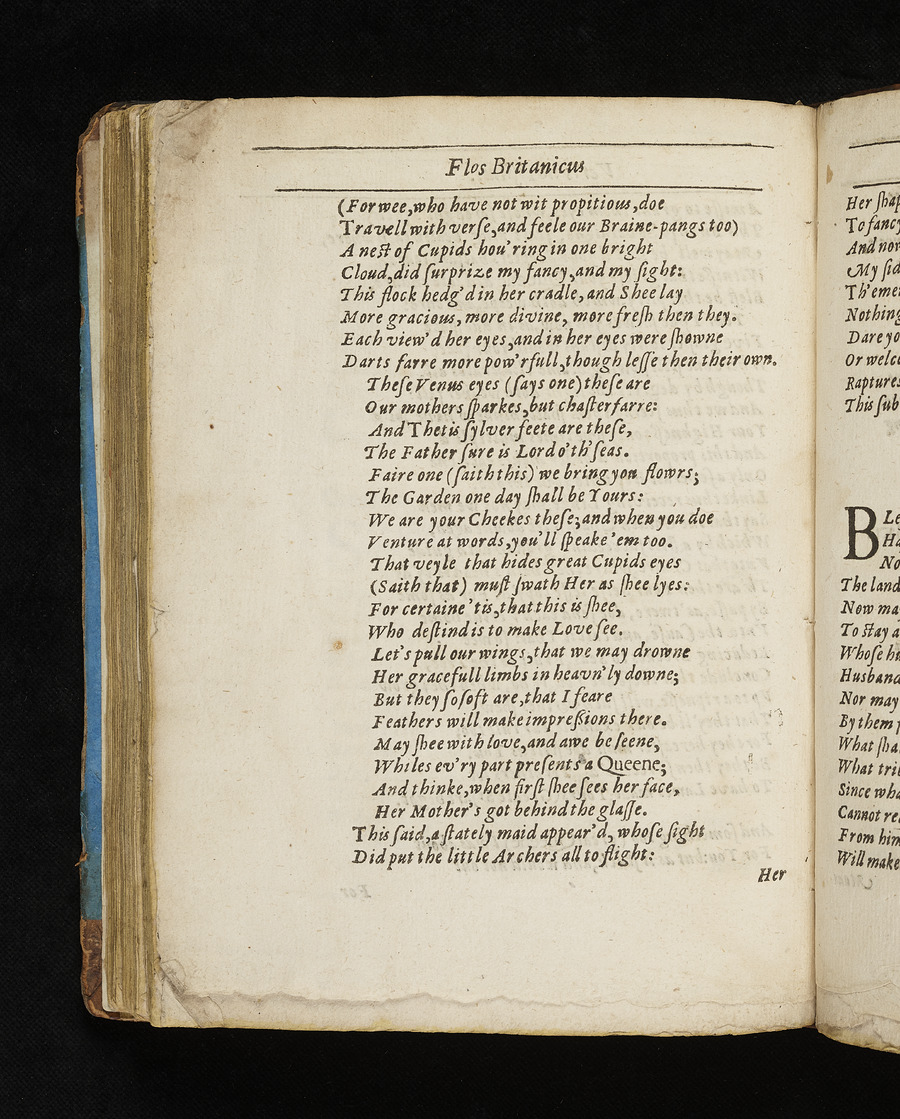 Flos Britanicus
(For wee,who have not wit propitious,doe
Travell with verſe,and feele our Braine-pangs too)
A neſt of Cupids hou'ring in one bright
Cloud,did ſurprize my fancy,and my ſight:
This flock hedg'd in her cradle,and Shee lay
More gracious, more divine, more freſh then they.
Each view'd her eyes,and in her eyes were ſhowne
Darts farre more pow'rfull,though leſſe then their own.
Theſe Venus eyes (ſays one)theſe are
Our mothers ſparkes,but chaſter farre:
And Thetis ſylver feete are theſe,
The Father ſure is Lord o'th'ſeas.
Faire one (ſaith this) we bring you flowrs;
The Garden one day ſhall be Yours:
We are your Cheekes theſe;and when you doe
Venture at words,you'll ſpeake 'em too.
That veyle that hides great Cupids eyes
(Saith that) muſt ſwath Her as ſhee lyes:
For certaine 'tis,that this is ſhee,
Who deſtind is to make Love ſee.
Let's pull our wings,that we may drowne
Her gracefull limbs in heavn'ly downe;
But they ſo ſoft are,that I feare
Feathers will make impreſsions there.
May ſhee with love,and awe be ſeene,
Whiles ev'ry part preſents a Queene;
And thinke,when firſt ſhee ſees her face,
Her Mother's got behind the glaſſe.
This ſaid,a ſtately maid appear'd, whoſe ſight
Did put the little Archers all to flight:
Her
Her
To fancy
And now
My
Th'
Nothing
Dare yo
Or welc
Raptures
This ſub
B
No
The land
Now ma
To ſtay a
Whoſe
Husband
Nor may
By them
What ſha
What
Since wha
Cannot
From him
Will make